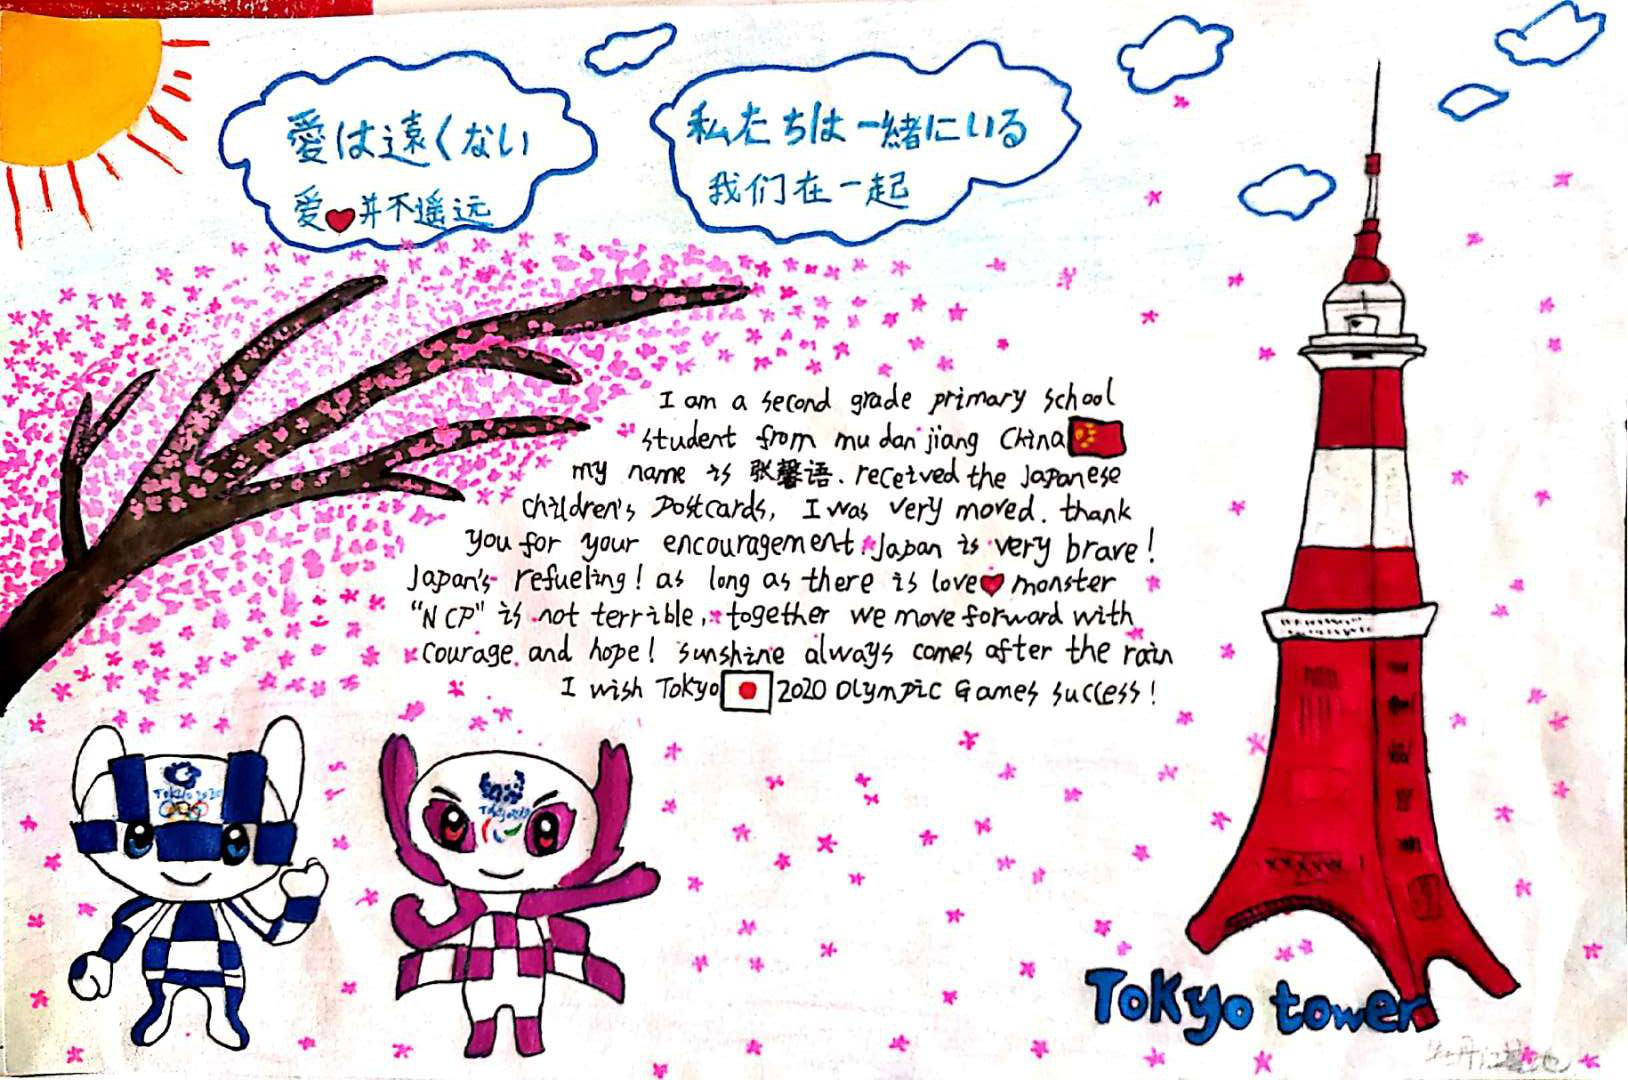 愛は遠くない
爱并不遥远
私たちは一緒にいる
我们在一起
I am a second grade primary school
student from mu dan jiang China
my name is 张馨语. received the Japanese
children's Postcards, I was very moved. thank
you for your encouragement. Japan is very brave!
Japan's refueling! as long as there is love monster
"NCP" is not terrible, together we move forward with
courage and hope! sunshine always comes after the rain
I wish Tokyo 2020 Olympic Games success!
Tokyo 2020
Tokyo2020
Tokyo tower